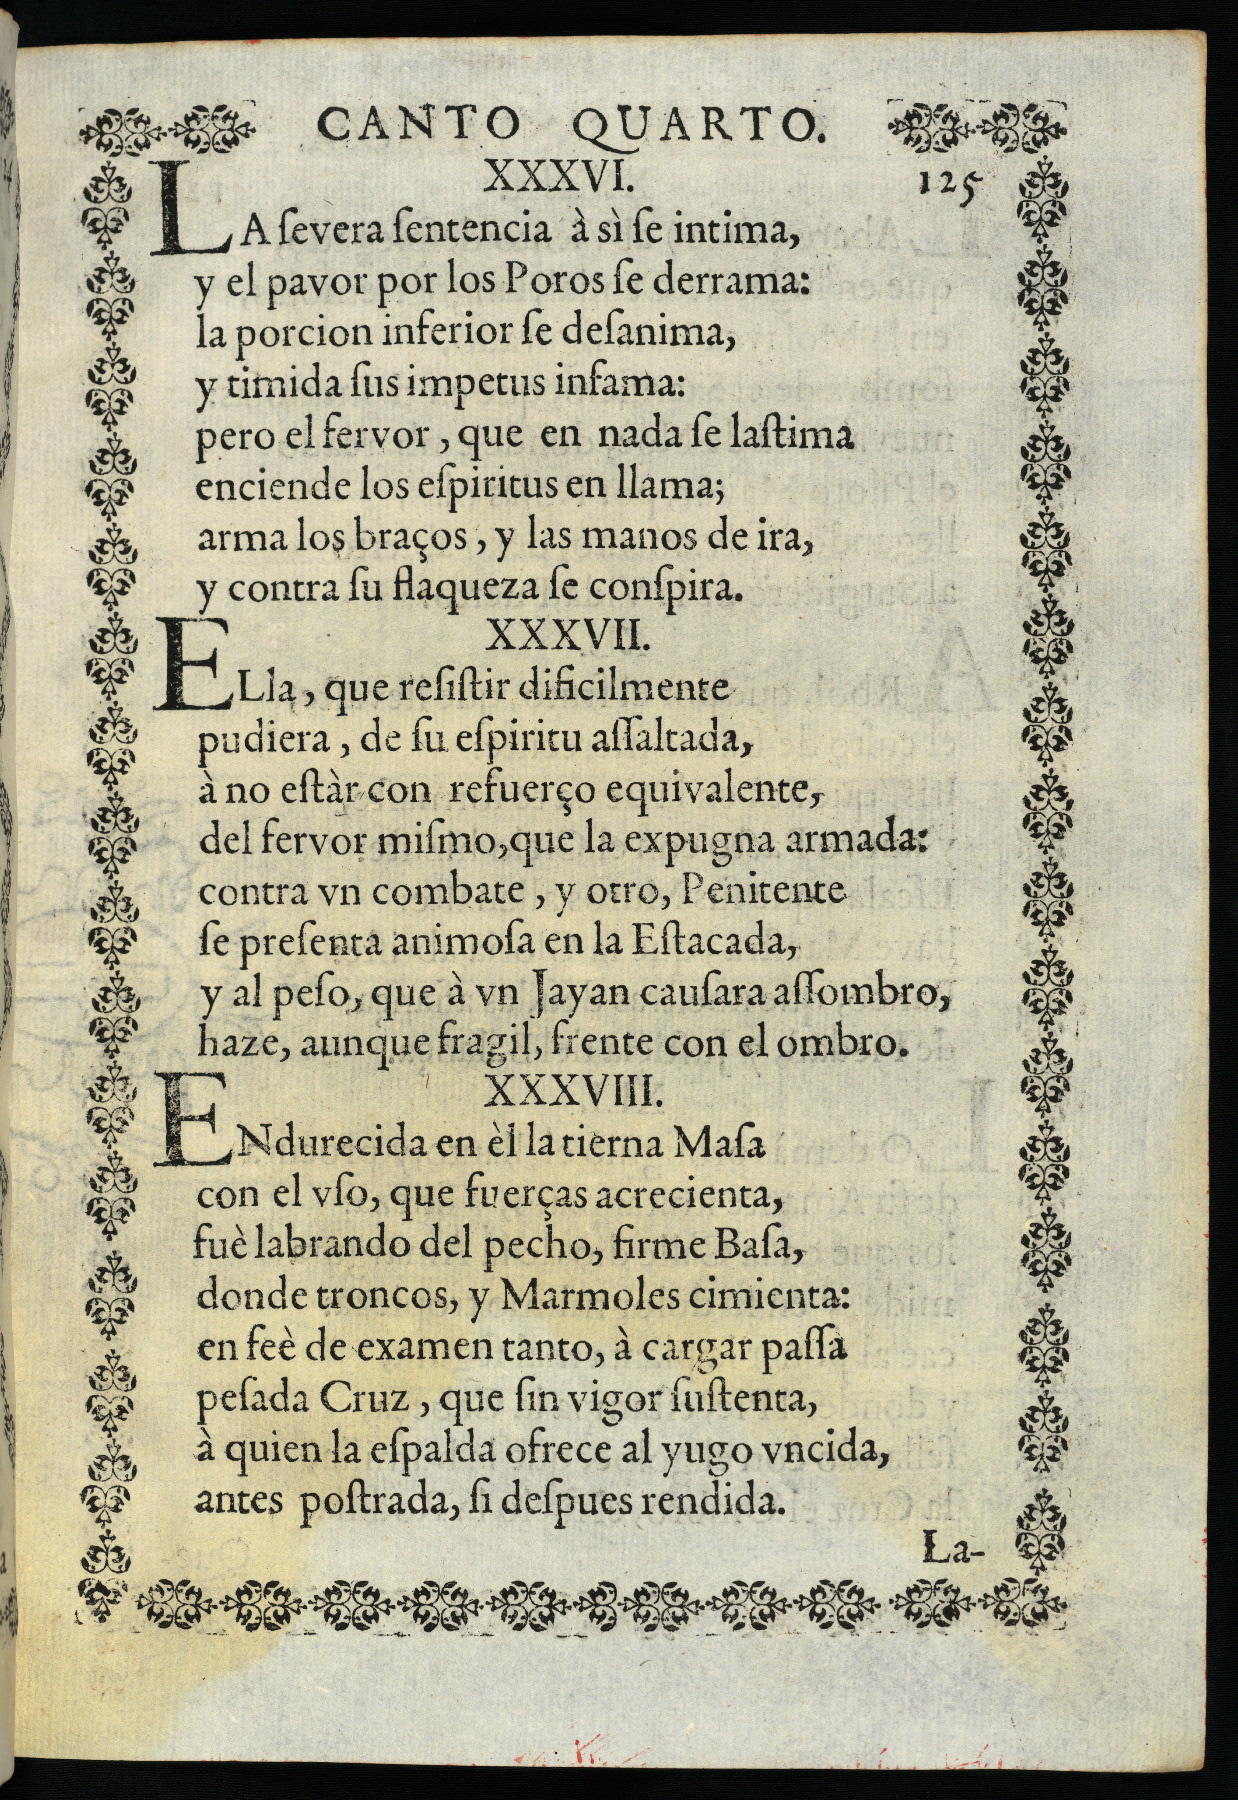 CANTO QUARTO.
XXXVI.
125
LA ſevera ſentencia à sì ſe intima,
y el pavor por los Poros ſe derrama:
la porcion inferior ſe deſanima,
y timida ſus impetus infama:
pero el fervor , que en nada ſe laſtima
enciende los eſpiritus en llama;
arma los braços , y las manos de ira,
y contra ſu flaqueza ſe conſpira.
XXXVII.
ELla, que reſiſtir dificilmente
pudiera , de ſu eſpiritu aſſaltada,
à no eſtàr con refuerço equivalente,
del fervor miſmo,que la expugna armada:
contra vn combate , y otro, Penitente
ſe preſenta animoſa en la Eſtacada,
y al peſo, que à vn Jayan cauſara aſſombro,
haze, aunque fragil, frente con el ombro.
XXXVIII.
ENdurecida en èl la tierna Maſa
con el vſo, que fuerças acrecienta,
fuè labrando del pecho, firme Baſa,
donde troncos, y Marmoles cimienta:
en feè de examen tanto, à cargar paſſa
peſada Cruz , que ſin vigor ſuſtenta,
à quien la eſpalda ofrece al yugo vncida,
antes poſtrada, ſi deſpues rendida.
La-